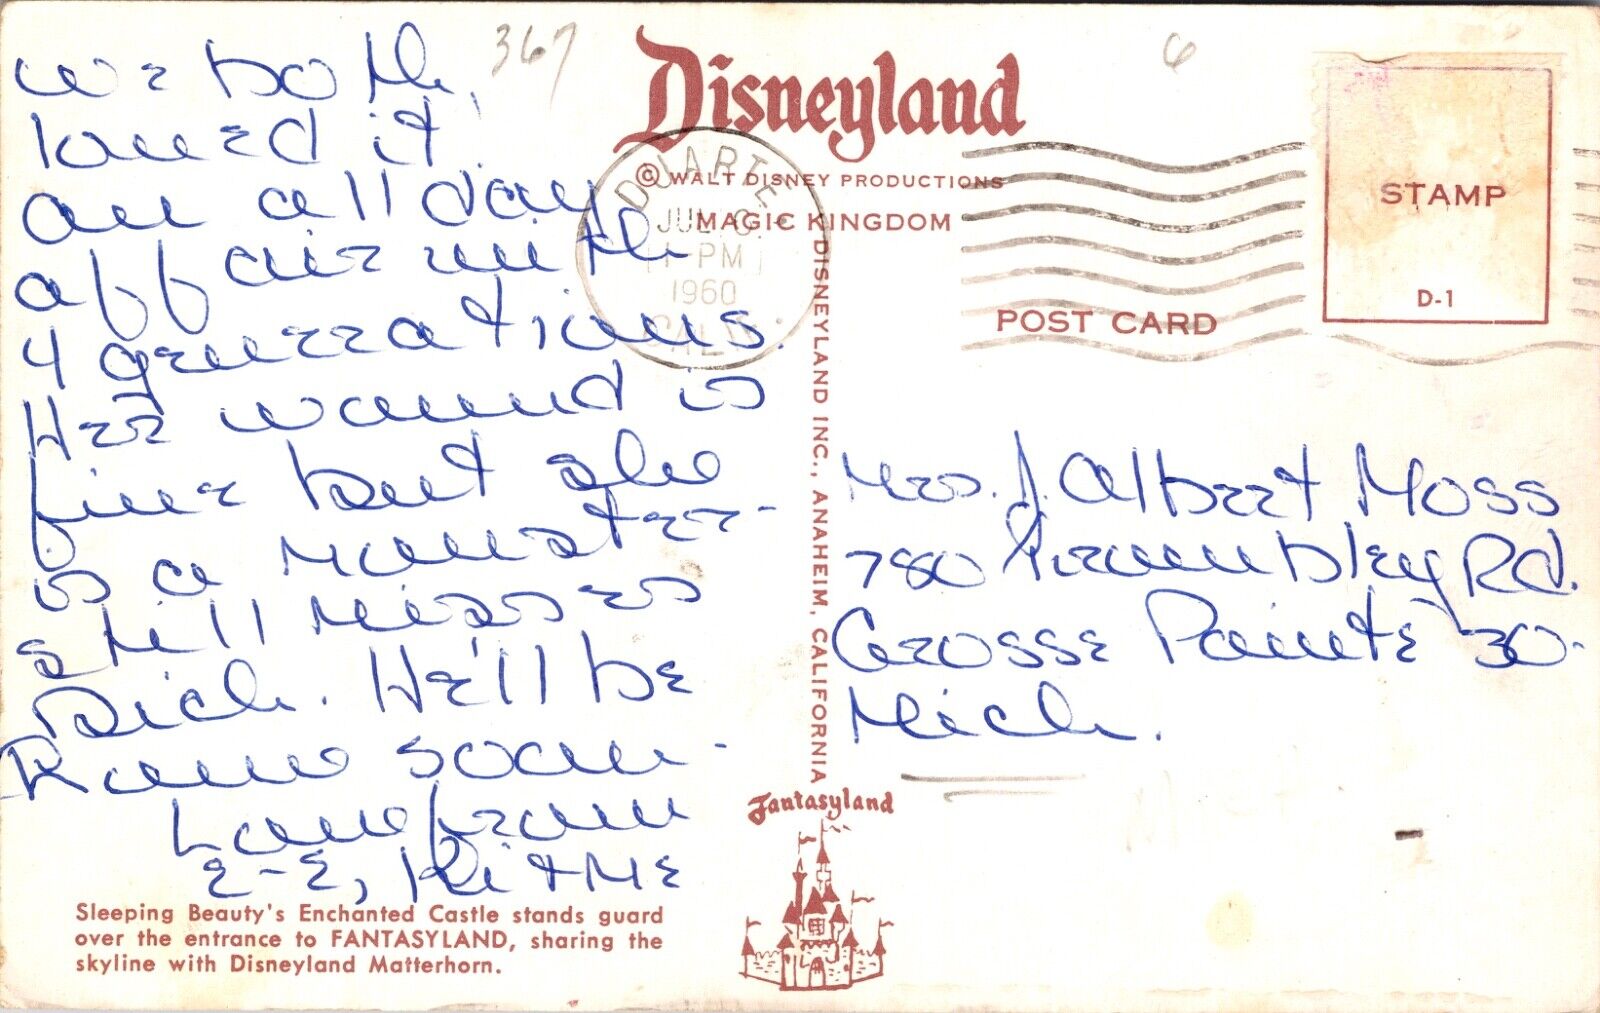 we both
loved it.
an all day
affair with
4 generations.
Her wound is
fine but she
is a monster-
still misses
Dick. He'll be
home soon-
Love from
E-E, Kit & Me
Sleeping Beauty's Enchanted Castle stands guard
over the entrance to FANTASYLAND, sharing the
skyline with Disneyland Matterhorn.
367
6
Disneyland
© WALT DISNEY PRODUCTIONS
MAGIC KINGDOM
POST CARD
STAMP
D-1
DUARTE
JUL 6
PM
1960
CALIF.
DISNEYLAND INC., ANAHEIM, CALIFORNIA
Fantasyland
Mrs. J. Albert Moss
780
Rd.
Grosse Pointe 30-
Mich.